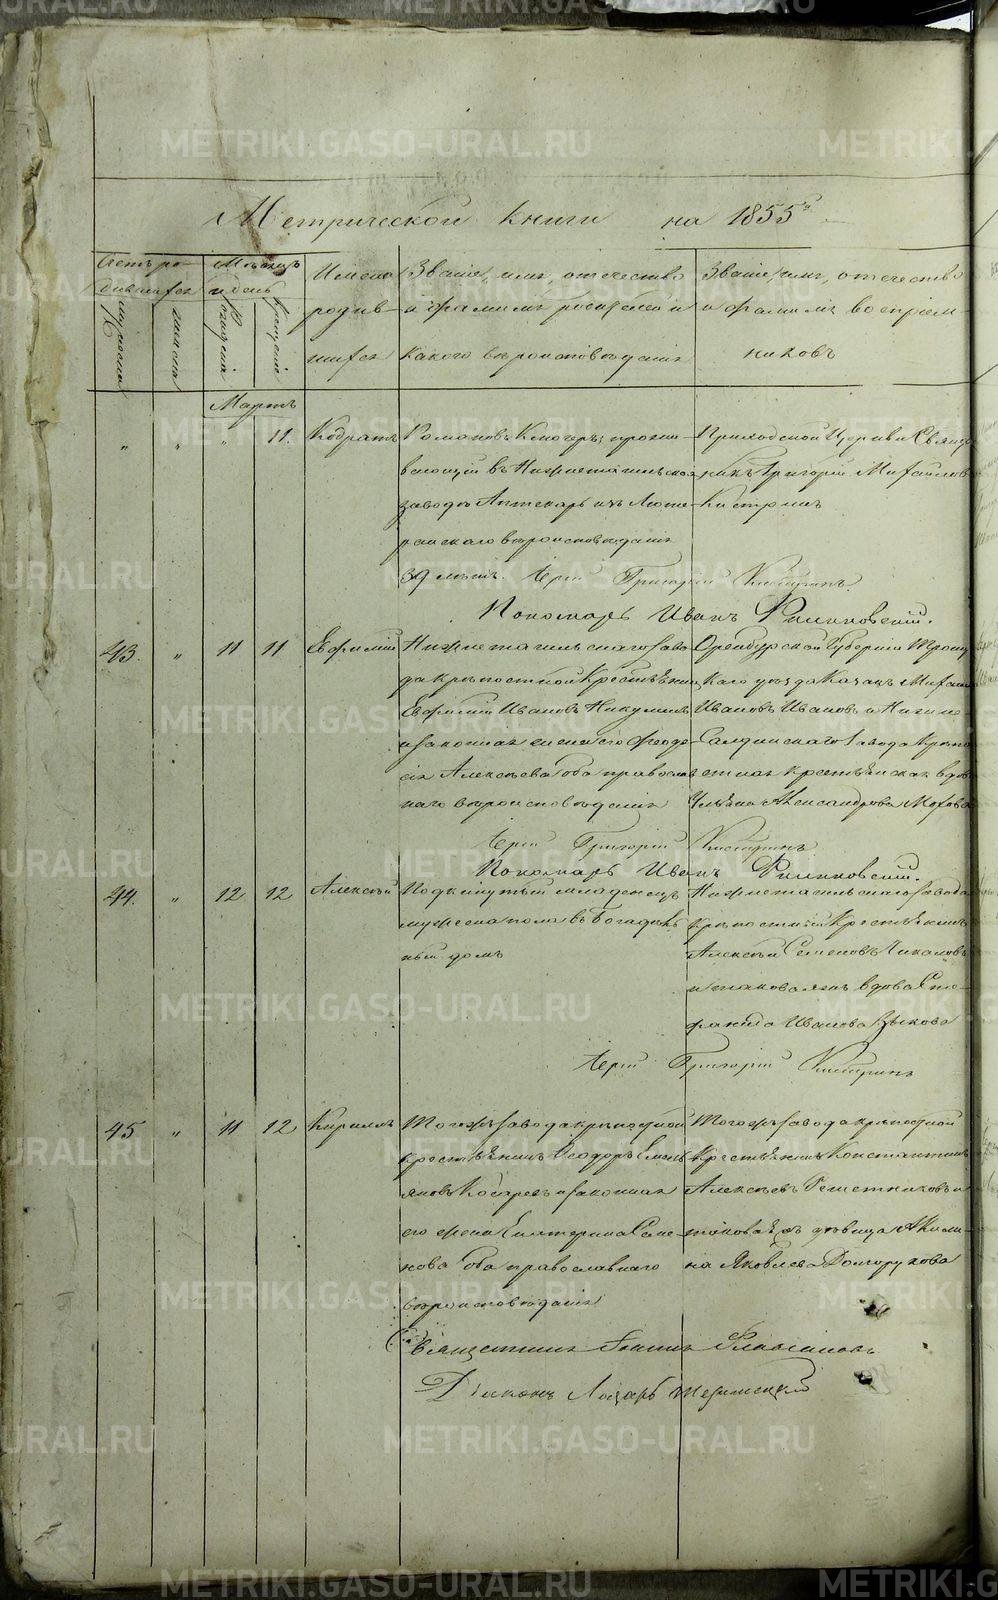 Метрической книги на 1855й
Счетъ ро-
дившихся
Мѣсяцъ
и день
Имена
родив-
шихся
Званіе, имя, отечество
и фамилія родителей и
какого вѣроисповѣданія
Званіе, имя, отечество
и фамилія воспріем-
никовъ
мужеска
женска
рожденія
крещенія
Мартъ
" " " 11. Кодратъ
Романовъ прожи-
вающій въ Нижнетагильском
заводѣ Аптекарь изъ Люте-
ранскаго вѣроисповѣданія
39 лѣтъ.
Приходской Церкви Священ
никъ Григорій Михайловъ
Кистринъ
Іерей Григорій Кистринъ.
Пономарь Иванъ Филиковскій.
43. " 11 11 Евфимій
Нижнетагильскаго заво
да крѣпостной Крестьянинъ
Евфимій Ивановъ Никулинъ
и законная жена его Феодо
сія Алексѣева оба православ
наго вѣроисповѣданія
Оренбургской Губерніи Троиц
каго уѣзда Казакъ Михаилъ
Ивановъ Ивановъ и Нижне
Салдинскаго завода Крѣпо
стная крестьянская вдова
Ульяна Александрова Мохова
Іерей Григорій Кистринъ
Пономарь Иванъ Филиковскій.
44. " 12 12 Алексѣй
Подкинутый младенецъ
мужеска пола въ Богадѣль
ный домъ
Нижнетагильскаго завода
крѣпостный Крестьянинъ
Алексѣй Семеновъ Чикаловъ
и таковая жъ вдова Сте-
фанида Иванова Зыкова
Іерей Григорій Кистринъ
45 " 11 12 Кириллъ
Тогожъ завода крѣпостной
крестьянинъ Ѳеодоръ Емель
яновъ Косаревъ и законная
его жена Екатерина
оба православнаго
вѣроисповѣданія
Тогожъ завода крѣпостной
Крестьянинъ Константинъ
Алексѣевъ Решетниковъ и
таковая жъ дѣвица Акили-
на Яковлева Долгорукова
Священникъ Іоаннъ Флавіановъ
Діаконъ Лазарь
METRIKI.GASO-URAL.RU